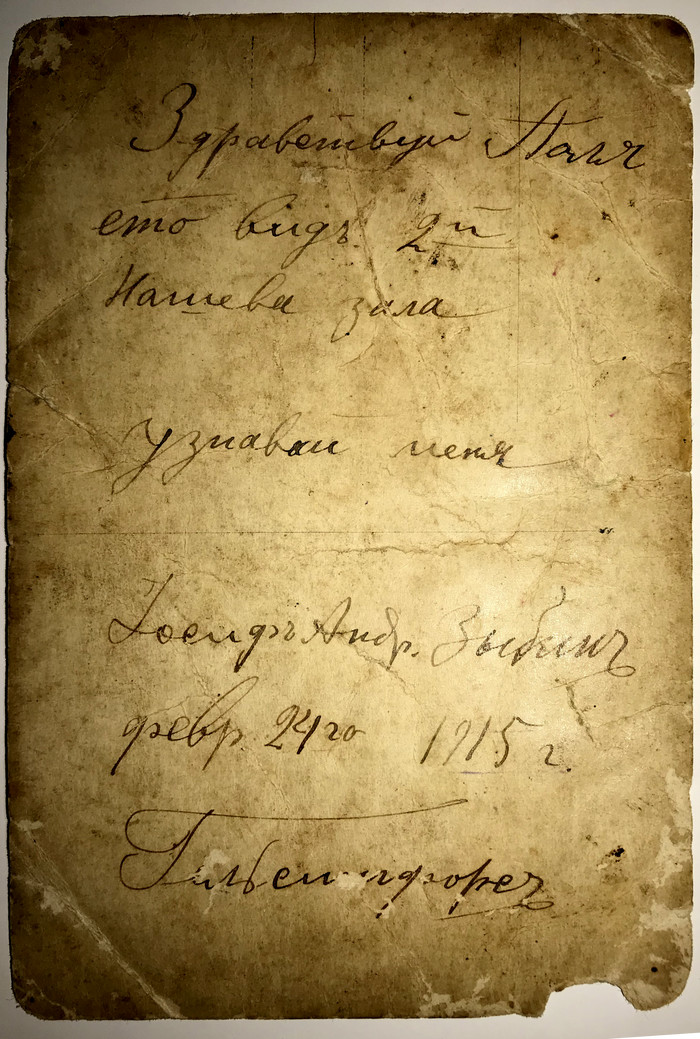 Здравствуй Паня
ето видъ 2й
Нашева зала
узнавай меня
Іосифъ Андр. Зыбинъ
февр. 24го 1915 г.
Гильсингфорсъ